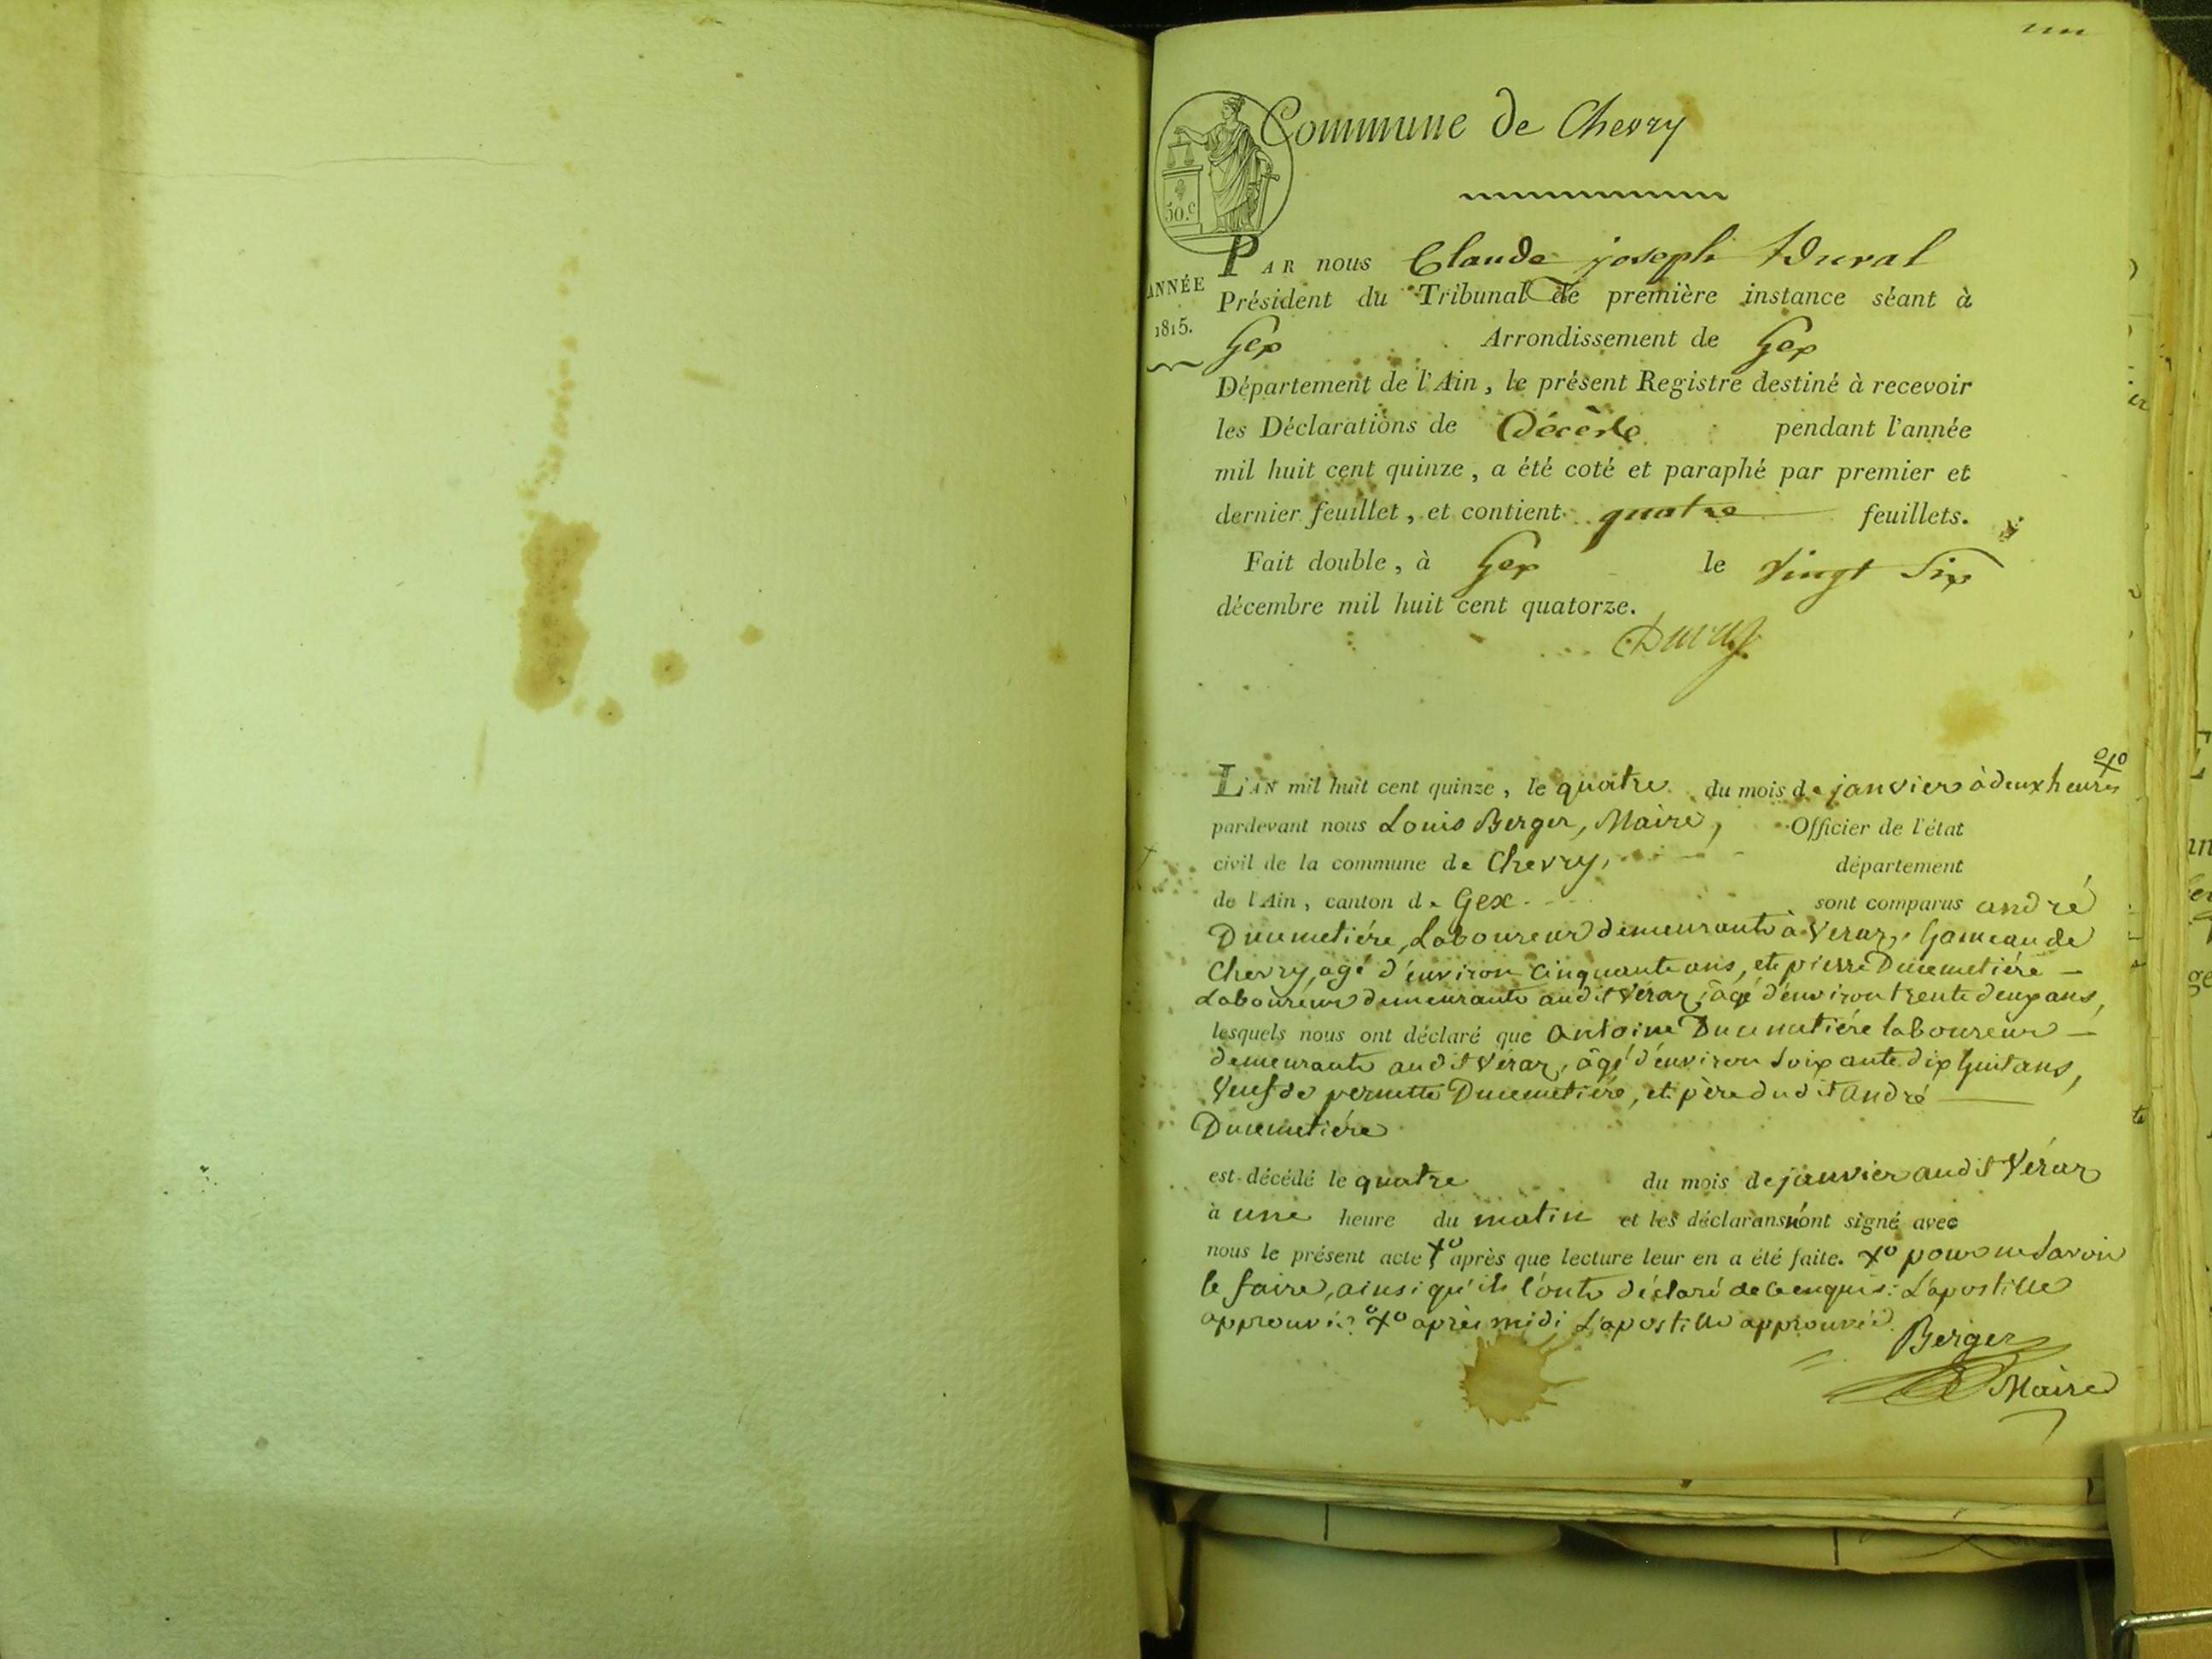 Commune de Chevry
50.c
ANNÉE
1815.
PAR nous Claude joseph Duval
Président du Tribunal de première instance séant à
Gex Arrondissement de Gex
Département de l'Ain, le présent Registre destiné à recevoir
les Déclarations de Décès pendant l'année
mil huit cent quinze, a été coté et paraphé par premier et
dernier feuillet, et contient quatre feuillets.
Fait double, à Gex le vingt Six
décembre mil huit cent quatorze.
Duval
L'AN mil huit cent quinze, le quatre du mois de janvier à deux heures
pardevant nous Louis Berger, Maire, Officier de l'état
civil de la commune de Chevry, département
de l'Ain, canton de Gex sont comparus andré
Ducimetiére, Laboureur demeurant à Veraz, hameau de
Chevry, agé d'environ Cinquante ans, et pierre Ducimetiére
Laboureur demeurant audit Véraz, âgé d'environ trente deux ans,
lesquels nous ont déclaré que antoine Ducimetiére laboureur
demeurant audit Véraz, âgé d'environ soixante dix huit ans,
Veuf de pernette Ducimetiére, et père dudit andré
Ducimetiére
est décédé le quatre du mois de janvier audit Véraz
à une heure du matin et les déclarans n'ont signé avec
nous le présent acte xo après que lecture leur en a été faite. xo pour ne savoir
le faire, ainsi qu'ils l'ont déclaré de ce enquis. L'apostille
approuvée. oxo après midi L'apostille approuvée.
Berger
Maire